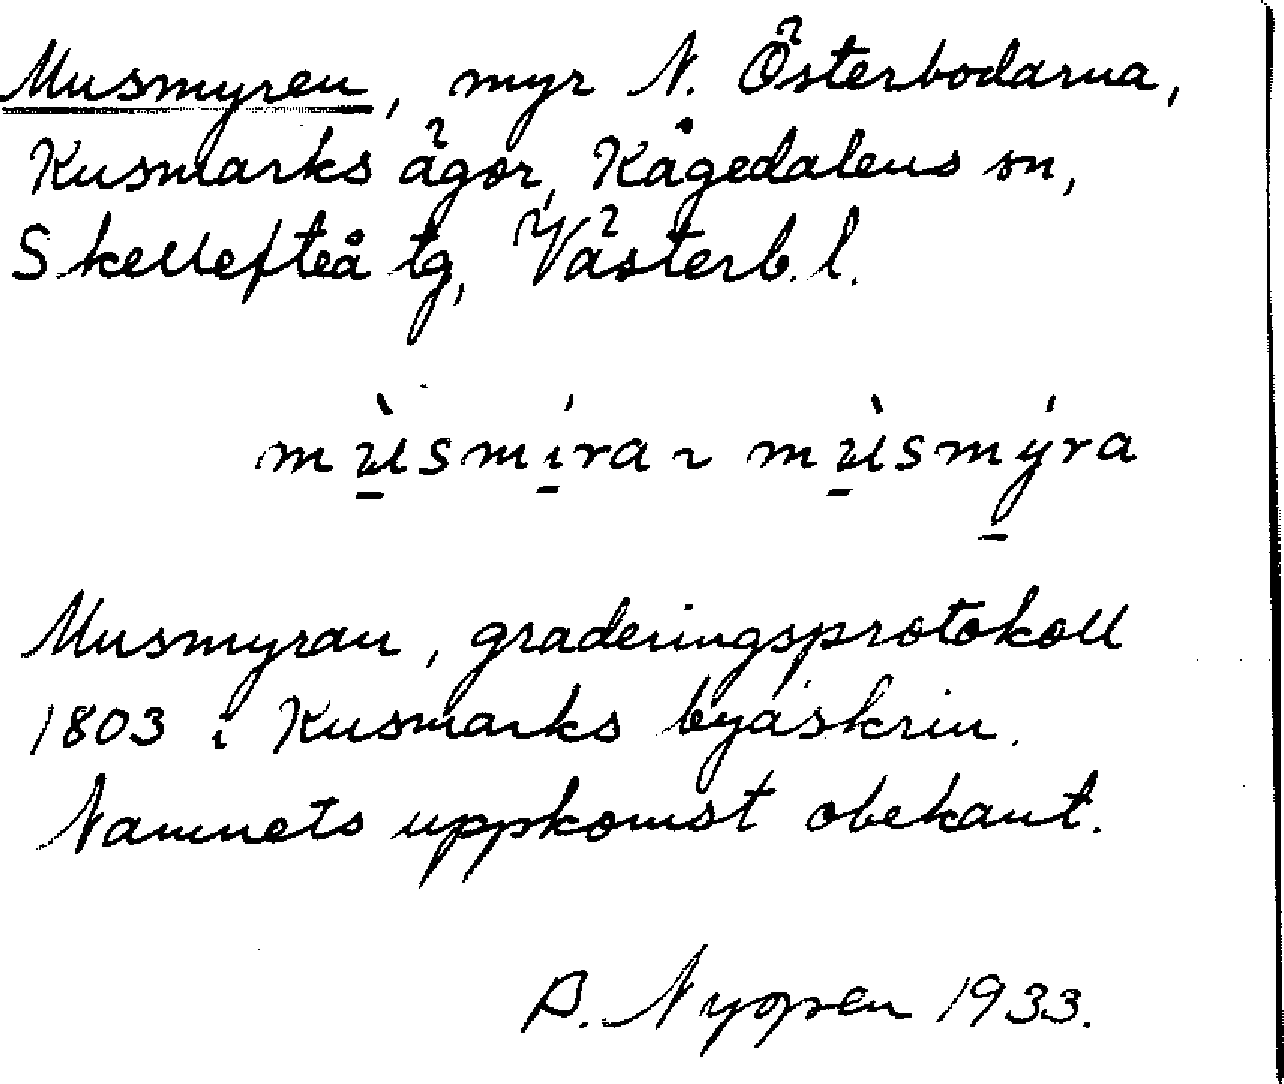 Musmyren, myr N. Österbodarna,
Kusmarks ägor, Kågedalens sn,
Skellefteå tg, Västerb. l.
mùsmíra ~ mùsmýra
Musmyran, graderingsprotokoll
1803 i Kusmarks byaskrin.
Namnets uppkomst obekant.
B. Nygren 1933.